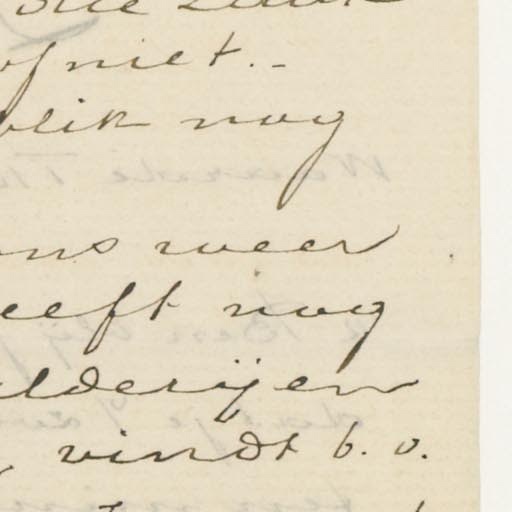 of niet. -
blik nog
ons weer
eeft nog
ilderijen
vindt b. v.